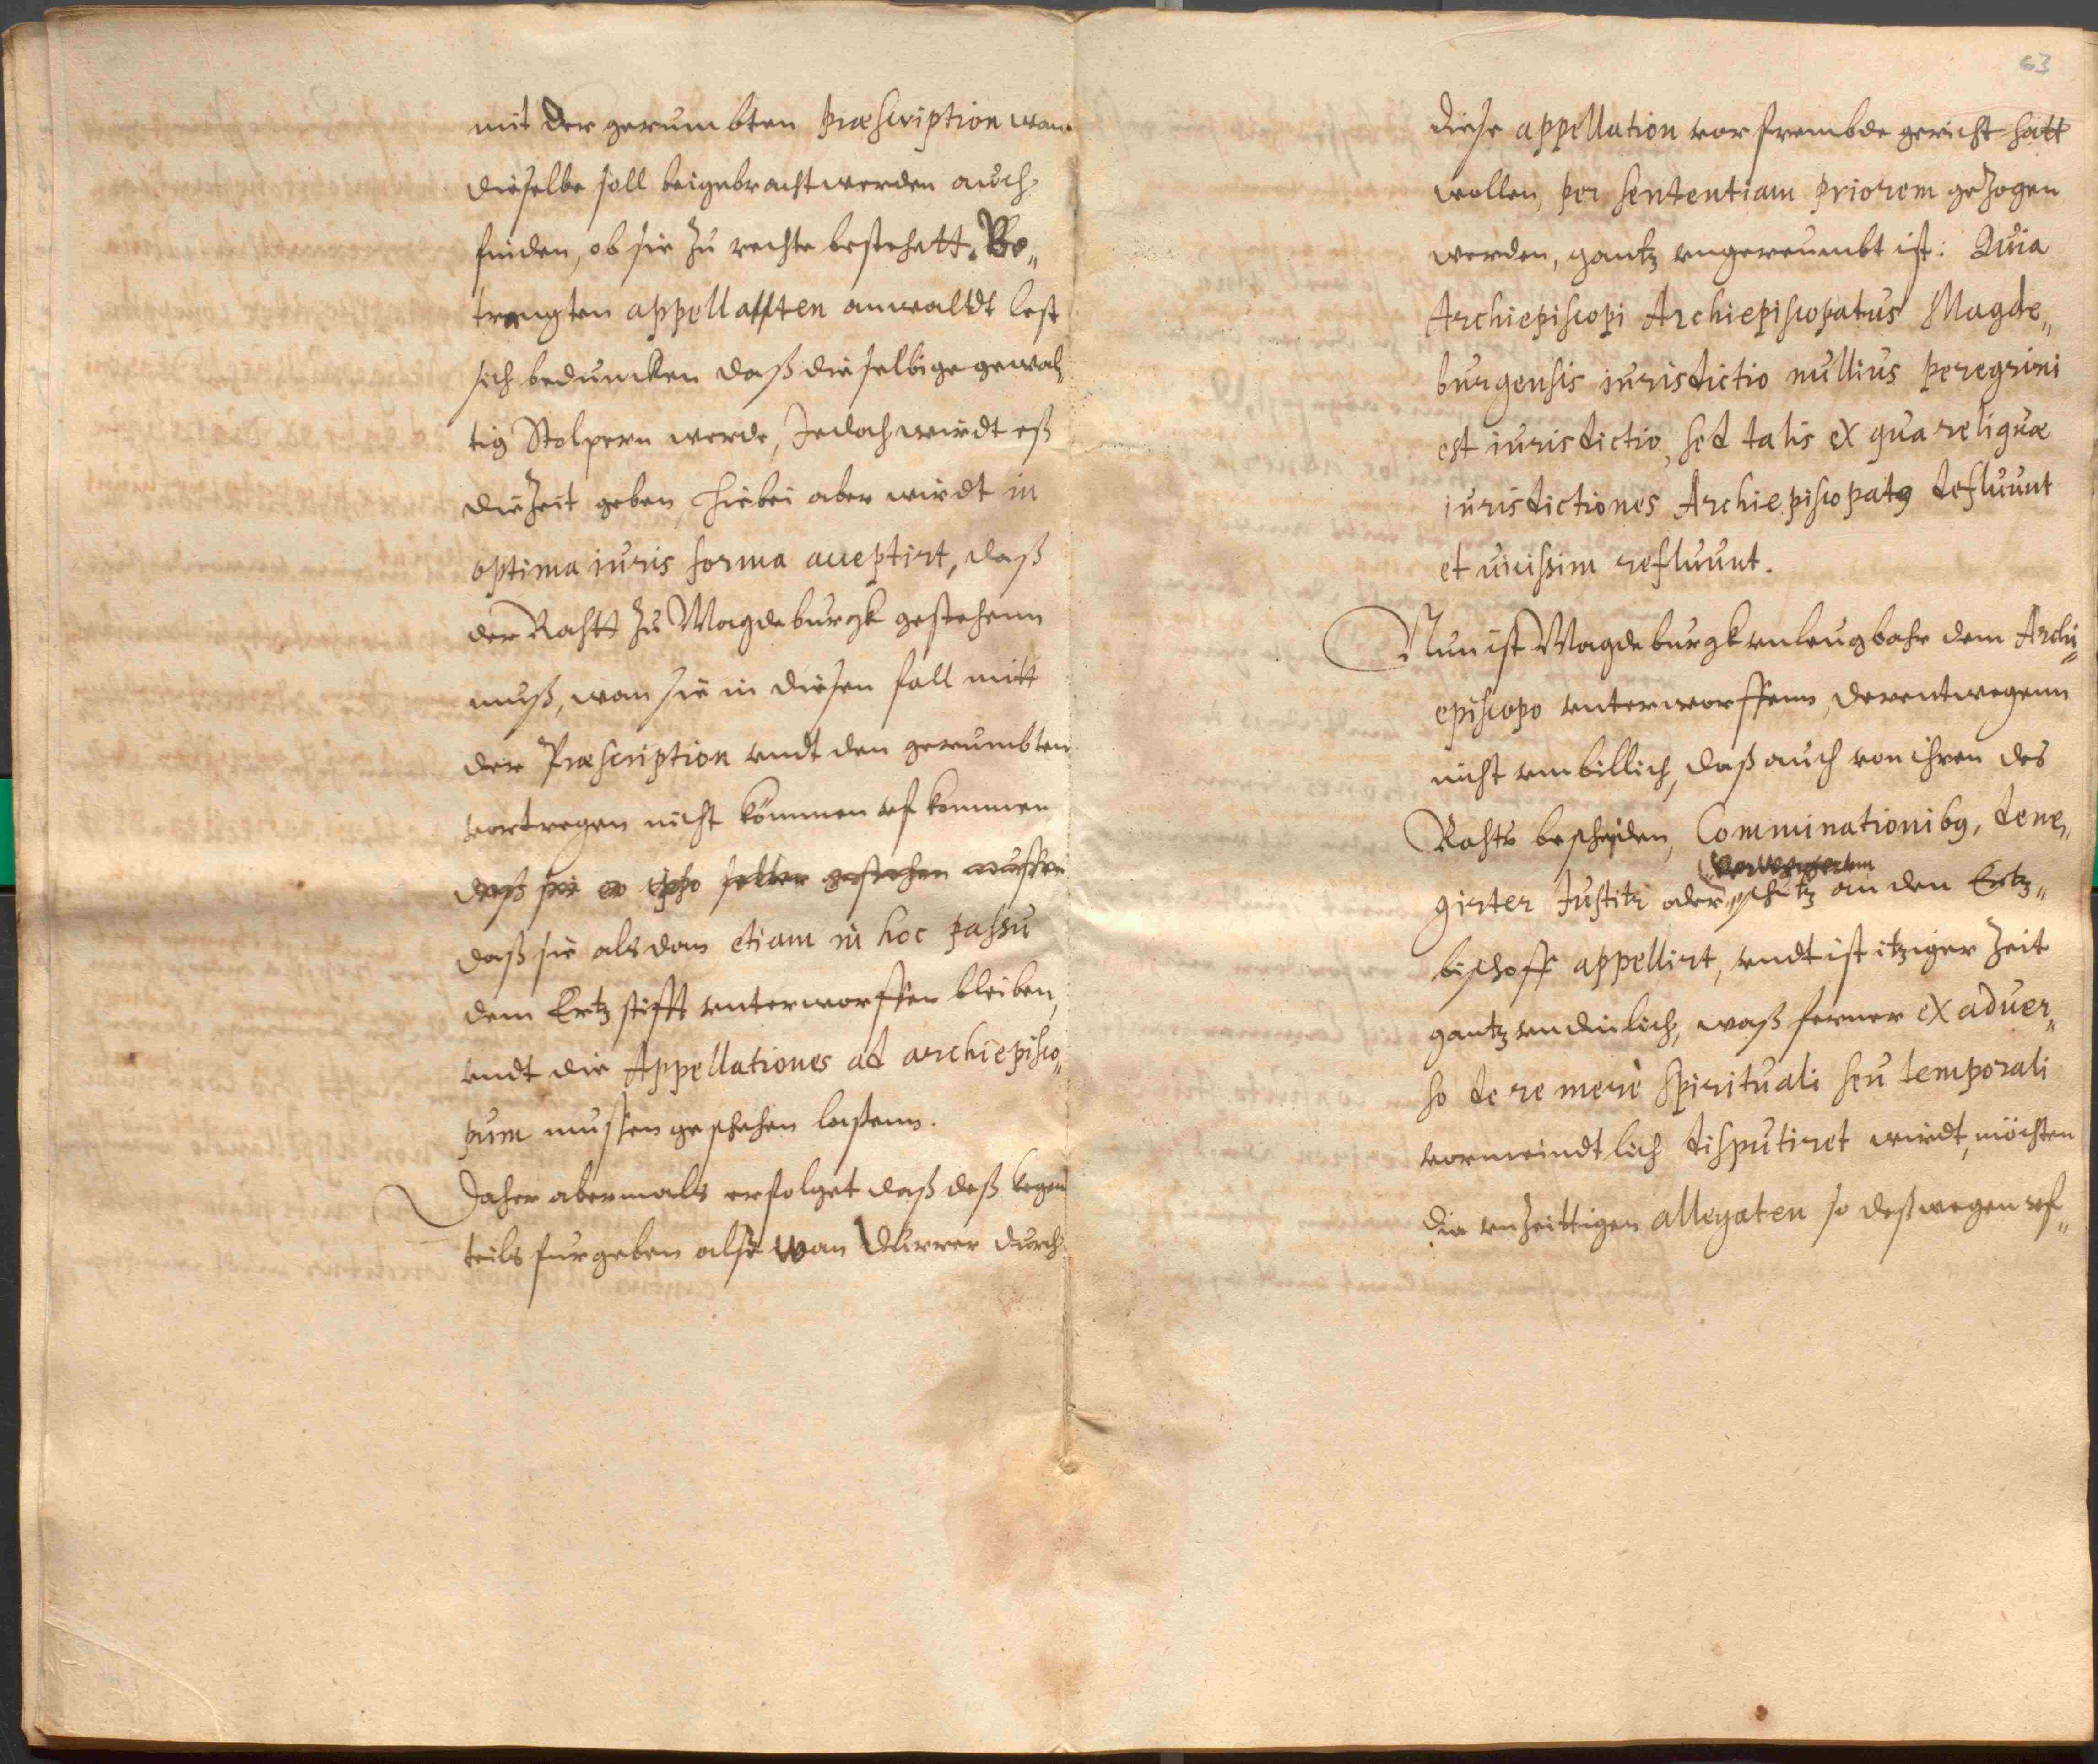 mit der gerumbten præscription wan
dieselbe soll beigebracht werden auch
finden, ob sie zu rechte bestehett. Be„
trengten appellatten anwaldt lest
sich beduncken daß dieselbige gewal„
tig Stolpern werde, Jedoch wirdt eß
die Zeit geben, hiebei aber wirdt in
optima iuris forma acceptirt, daß
der Rahtt zu Magdeburgk gestehenn
muß, wan sie in diesen fall mitt
der Præscription undt den gerumbten
vortregen nicht können uf kommen
daß sie eo ipso selber gestehen mussen
daß sie als dan etiam in hoc passu
dem Ertz stifft unterworffen bleiben,
undt die Appellationes ad archiepisco„
pum mussen geschehen lassenn.
Daher abermals erfolget daß deß kegen
teils furgeben alse wan durrer durch
63
diese appellation vor frembde gericht hatt
wollen, per sententiam priorem gezogen
werden, gantz ungereumbt ist: Quia
Archiepiscopi Archiepiscopatus Magde„
burgensis iurisdictio nullius peregrini
est iurisdictio, sed talis ex qua reliquæ
iurisdictiones Archiepiscopatus defluunt
et vicissim refluunt.
Nun ist Magdeburgk unleugbahr dem Archi„
episcopo unterworffenn, derentwegenn
nicht unbillich, daß auch von ihren des
Rahts bescheiden, Comminationibus, dene„
girter Justitz oder schutz an den Ertz„
bischoff appellirt, undt ist itziger Zeit
gantz undinlich, waß ferner ex adver„
so de re merè spirituali seu temporali
vormeindtlich disputiret wirdt, möchten
die unzeittigen allegaten so deßwegen uf„